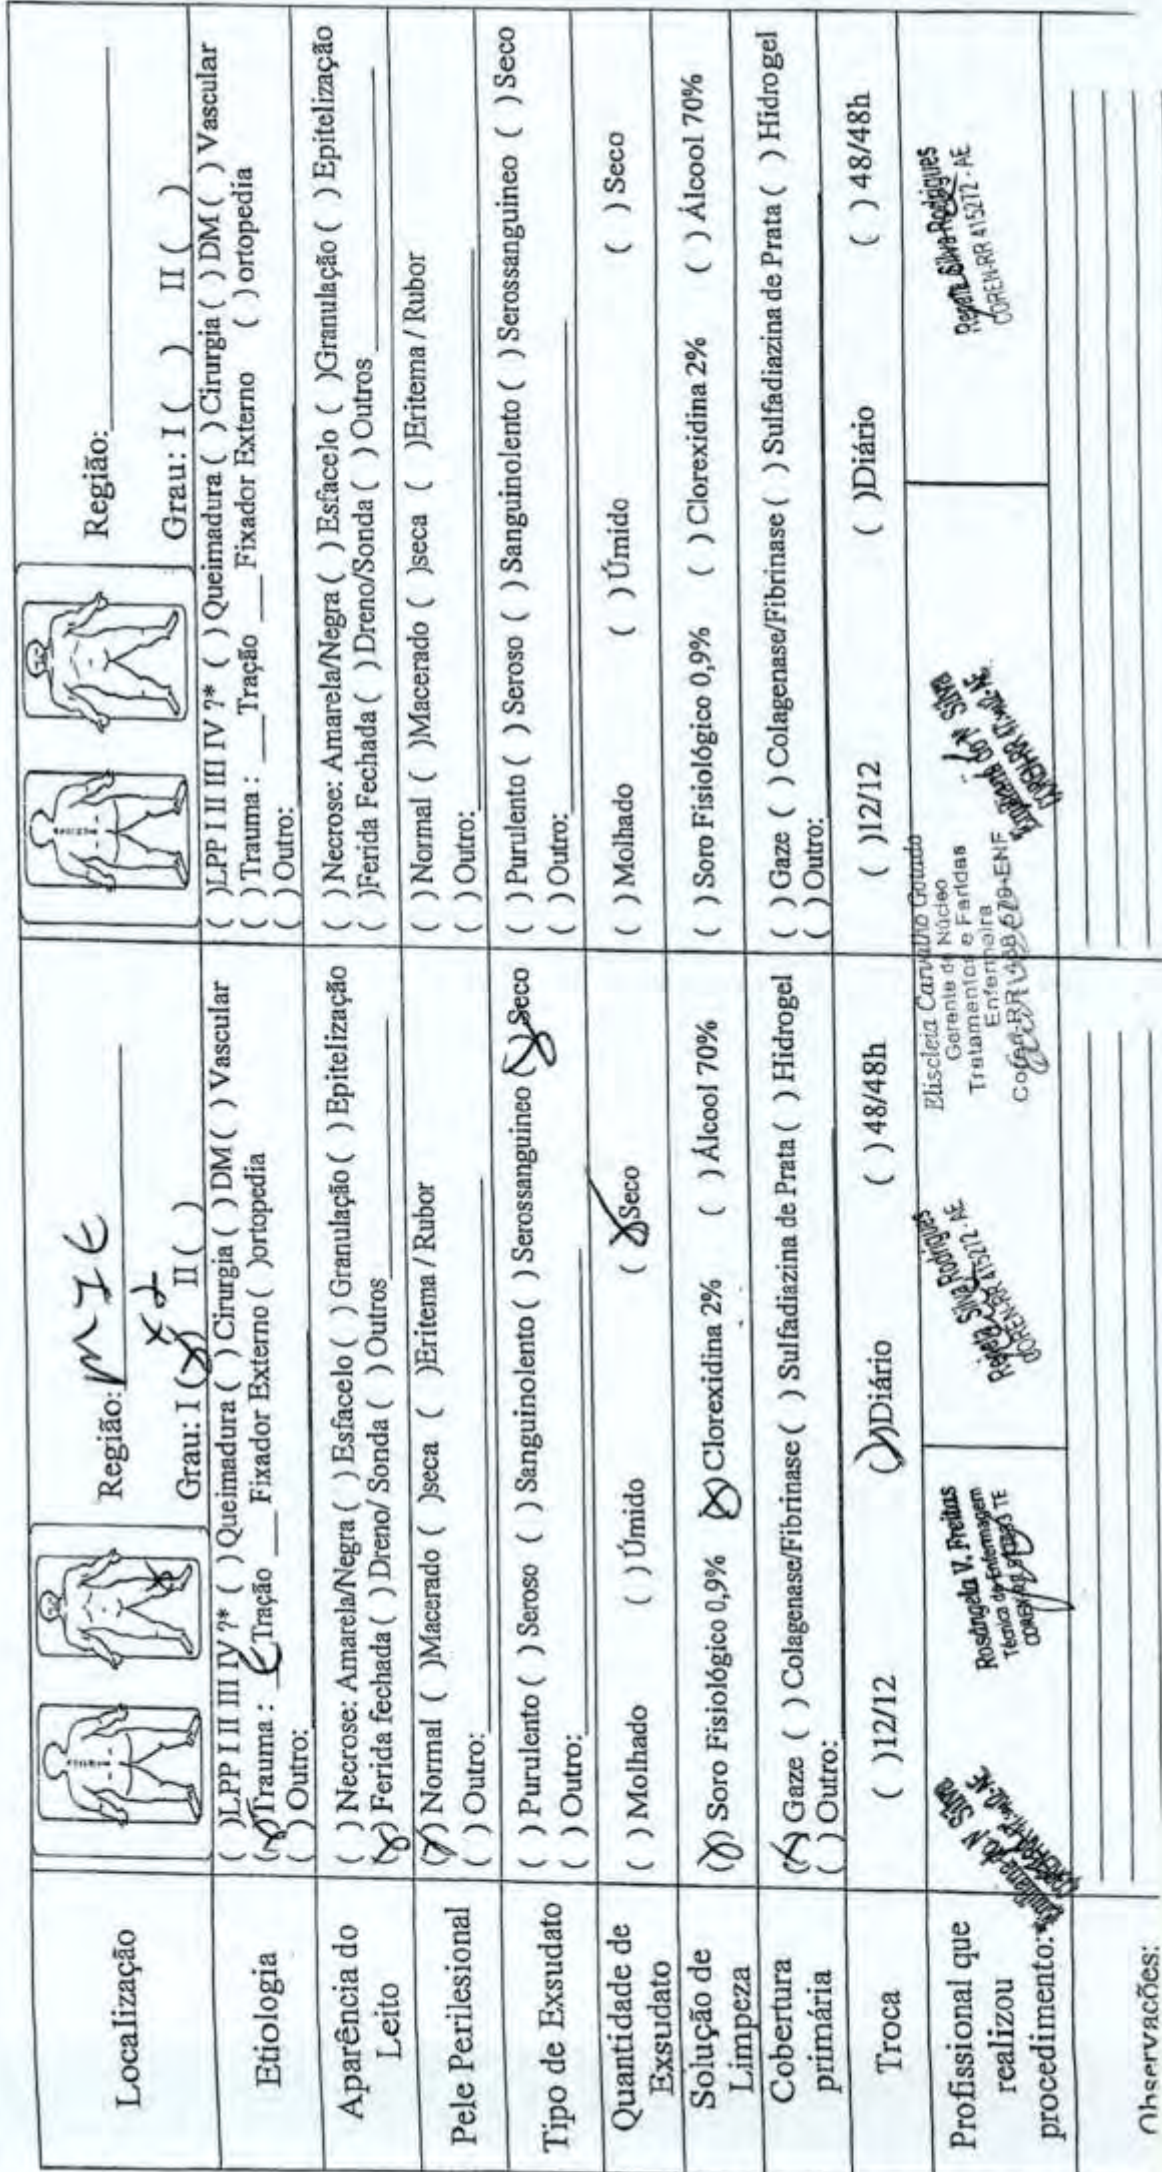 Localização
Região: MIE
Grau: I (X) II ( )
Região:
Grau: I ( ) II ( )
Etiologia
( )LPP I II III IV ?* ( ) Queimadura ( ) Cirurgia ( ) DM ( ) Vascular
(X)Trauma : Tração ___Fixador Externo ( )ortopedia
( ) Outro:
( )LPP I II III IV ?* ( ) Queimadura ( ) Cirurgia ( ) DM ( ) Vascular
( ) Trauma : ___Tração ___Fixador Externo ( ) ortopedia
( ) Outro:
Aparência do
Leito
( ) Necrose: Amarela/Negra ( ) Esfacelo ( ) Granulação ( ) Epitelização
(X) Ferida fechada ( ) Dreno/ Sonda ( ) Outros
( ) Necrose: Amarela/Negra ( ) Esfacelo ( )Granulação ( ) Epitelização
( )Ferida Fechada ( ) Dreno/Sonda ( ) Outros
Pele Perilesional
(X) Normal ( )Macerado ( )seca ( )Eritema / Rubor
( ) Outro:
( ) Normal ( )Macerado ( )seca ( )Eritema / Rubor
( ) Outro:
Tipo de Exsudato
( ) Purulento ( ) Seroso ( ) Sanguinolento ( ) Serossanguineo (X) Seco
( ) Outro:
( ) Purulento ( ) Seroso ( ) Sanguinolento ( ) Serossanguineo ( ) Seco
( ) Outro:
Quantidade de
Exsudato
( ) Molhado ( ) Úmido (X) Seco
( ) Molhado ( ) Úmido ( ) Seco
Solução de
Limpeza
(X) Soro Fisiológico 0,9% (X) Clorexidina 2% ( ) Álcool 70%
( ) Soro Fisiológico 0,9% ( ) Clorexidina 2% ( ) Álcool 70%
Cobertura
primária
(X) Gaze ( ) Colagenase/Fibrinase ( ) Sulfadiazina de Prata ( ) Hidrogel
( ) Outro:
( ) Gaze ( ) Colagenase/Fibrinase ( ) Sulfadiazina de Prata ( ) Hidrogel
( ) Outro:
Troca
( )12/12 (X)Diário ( ) 48/48h
( )12/12 ( )Diário ( ) 48/48h
Profissional que
realizou
procedimento:
N Silva
Rosângela V. Freitas
Técnica de Enfermagem
TE
Silva Rodrigues
COREN-RR 415272 - AE
Eliscleia Carvalho
Gerente de Núcleo
Tratamentos e Feridas
Enfermeira
-ENF
Silva
Silva Rodrigues
COREN-RR 415272 - AE
Observações: